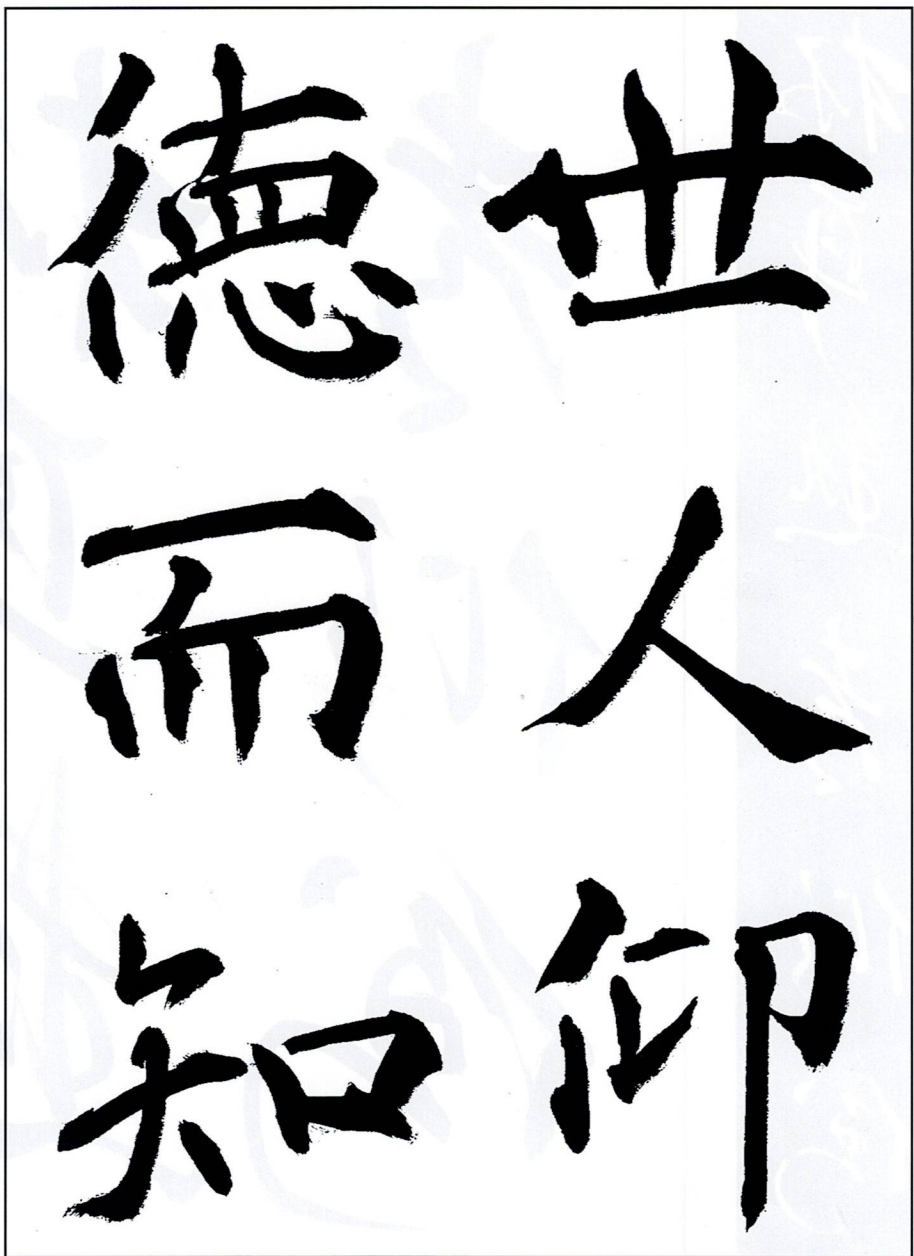 世人仰
徳而知